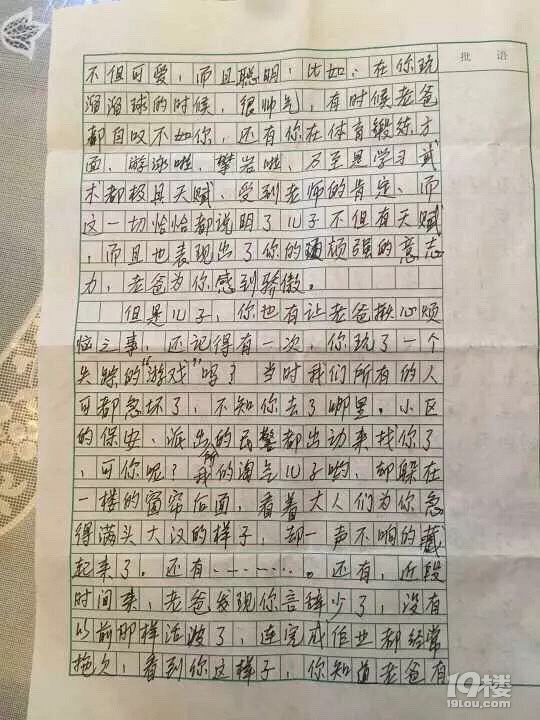 批 语
不但可爱，而且聪明，比如：在你玩
溜溜球的时候，很帅气，有时候老爸
都自叹不如你，还有你在体育锻练方
面，游泳啦，攀岩啦，乃至是学习武
术都极具天赋、受到老师的肯定、而
这一切恰恰都说明了儿子不但有天赋
，而且也表现出了你的顽强的意志
力，老爸为你感到骄傲。
但是儿子，你也有让老爸揪心烦
恼之事，还记得有一次，你玩了一个
失踪的“游戏”吗？当时我们所有的人
可都急坏了，不知你去了哪里。小区
的保安、派出所的民警都出动来找你了
，可你呢？我的淘气儿子哟，却躲在
一楼的窗帘后面，看着大人们为你急
得满头大汉的样子，却一声不响的藏
起来了。还有……。还有，近段
时间来，老爸发现你言辞少了，没有
以前那样活泼了，连完成作业都经常
拖欠，看到你这样子，你知道老爸有
19楼
19lou.com